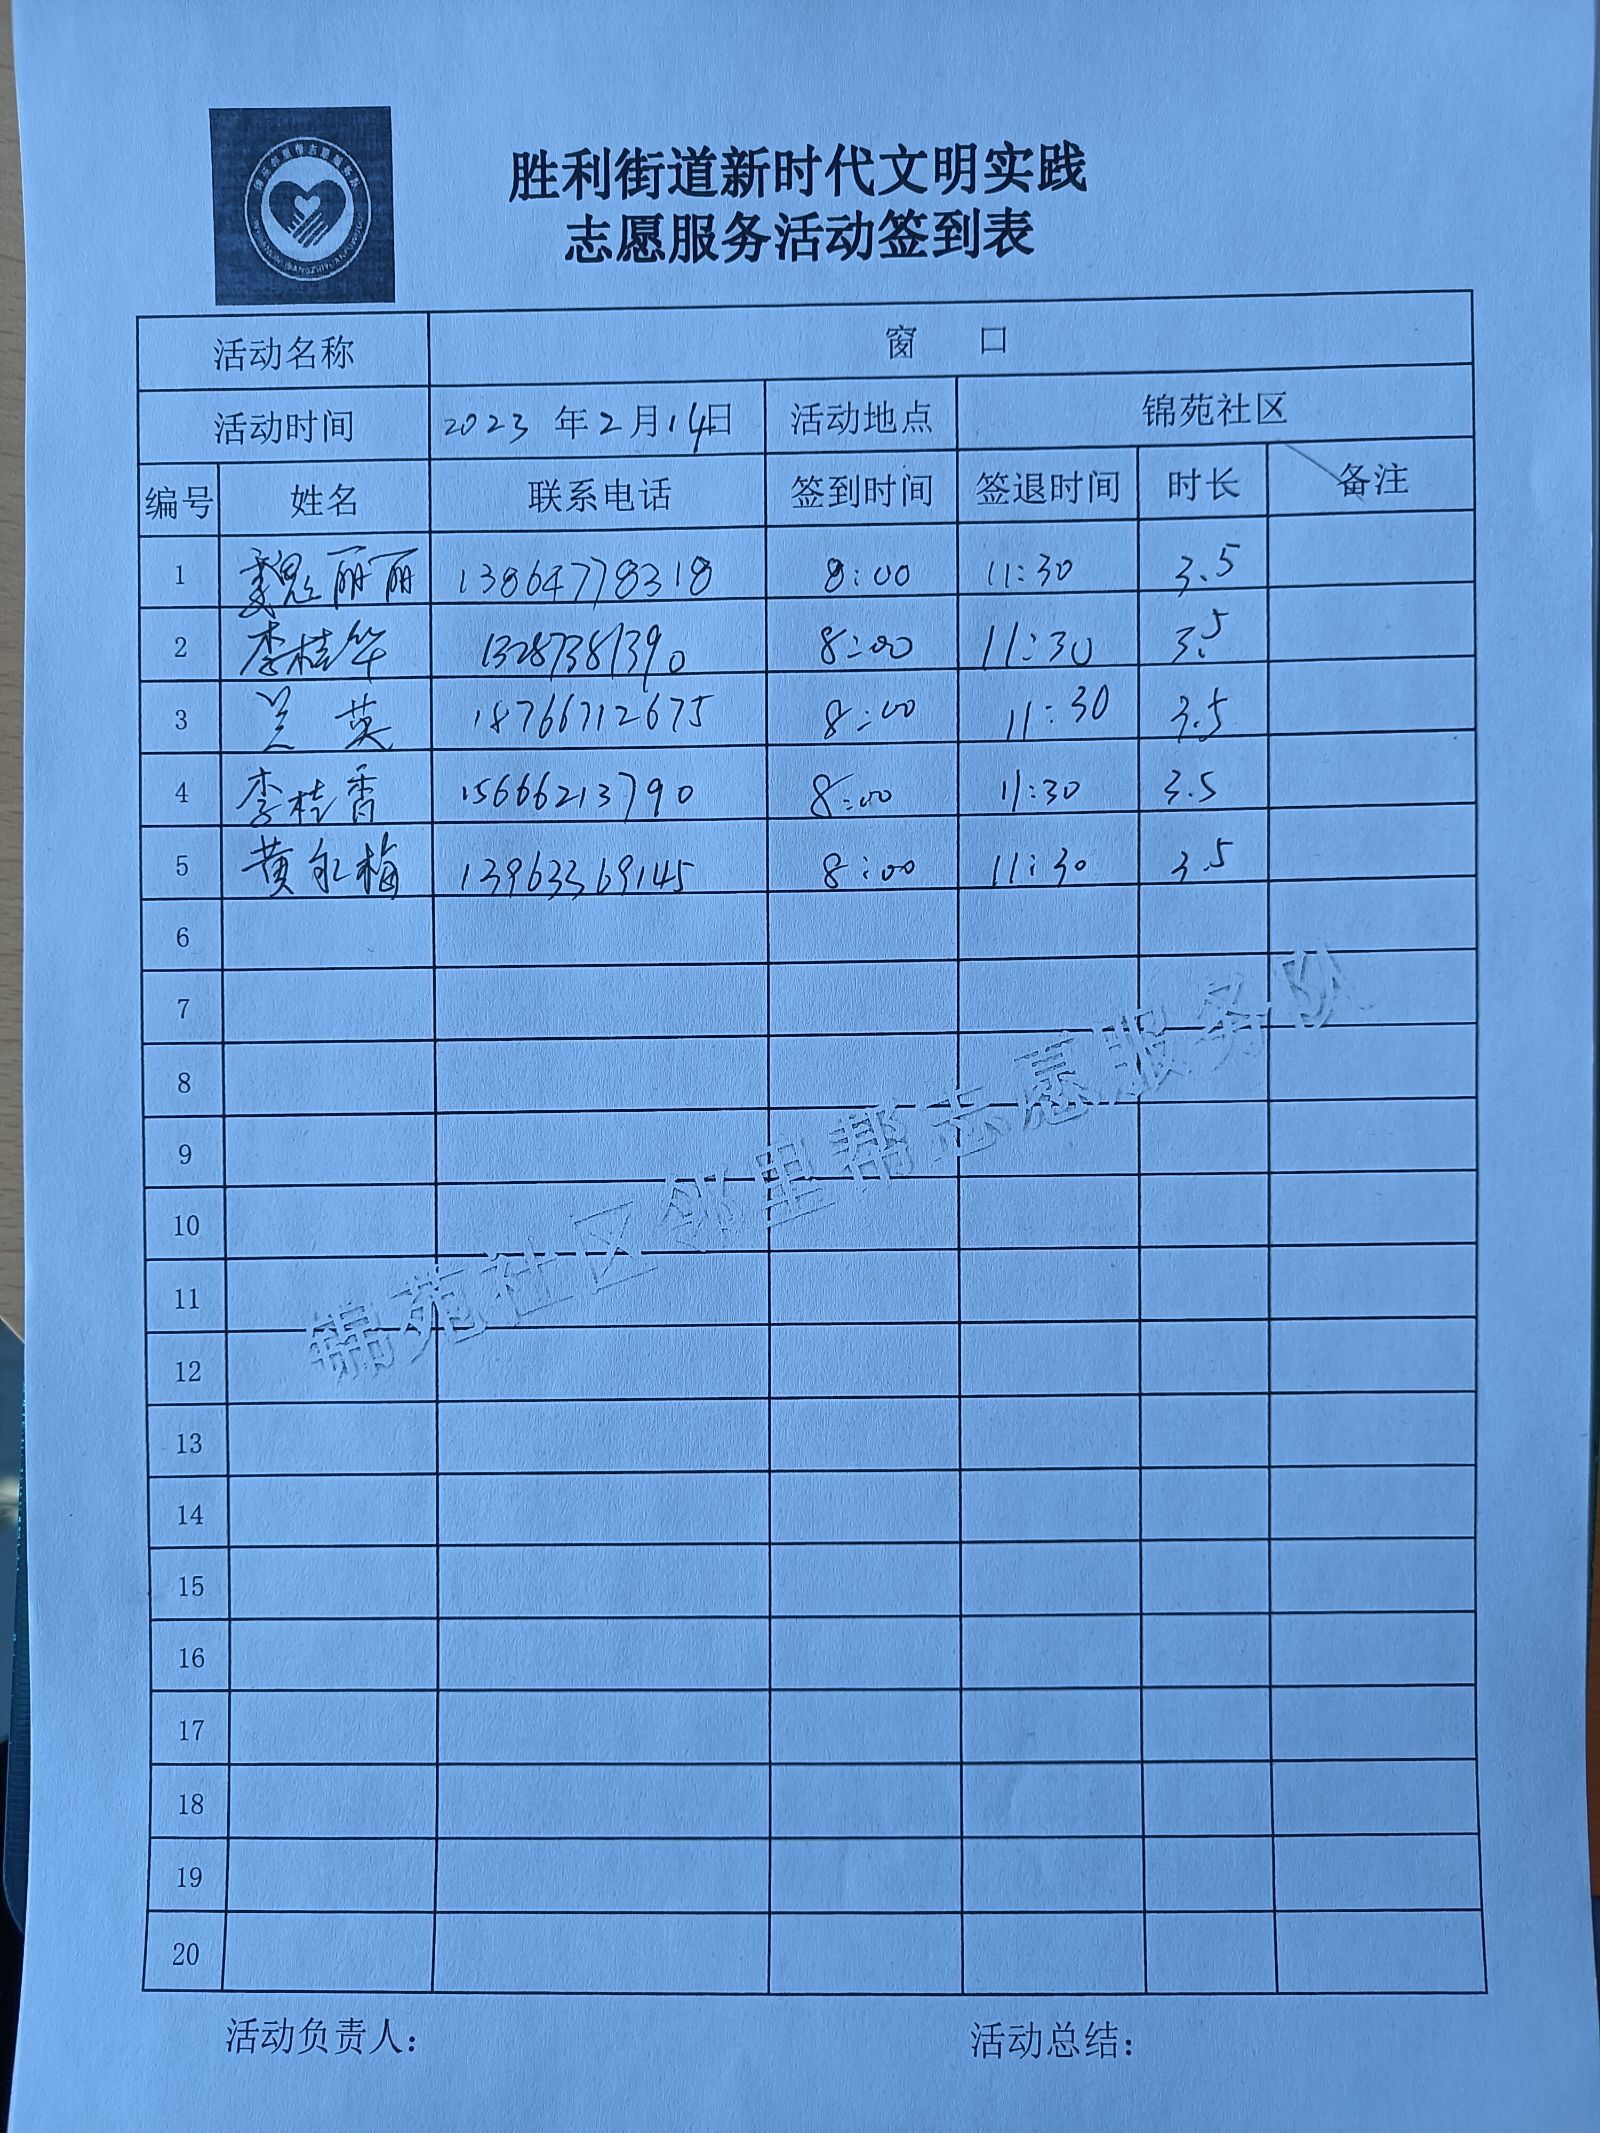 胜利街道新时代文明实践
志愿服务活动签到表
活动名称 窗 口
活动时间 2023 年 2 月 14 日 活动地点 锦苑社区
编号 姓名 联系电话 签到时间 签退时间 时长 备注
1 魏丽丽 13864778318 8:00 11:30 3.5
2 李桂华 13287381390 8:00 11:30 3.5
3 兰英 18766712675 8:00 11:30 3.5
4 李桂香 15666213790 8:00 11:30 3.5
5 黄永梅 13963369145 8:00 11:30 3.5
6
7
8
9
10
11
12
13
14
15
16
17
18
19
20
锦苑社区邻里帮志愿服务队
活动负责人: 活动总结: